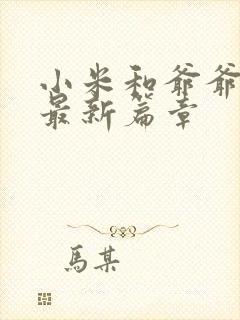 小米和爷爷
最新篇章
馬某